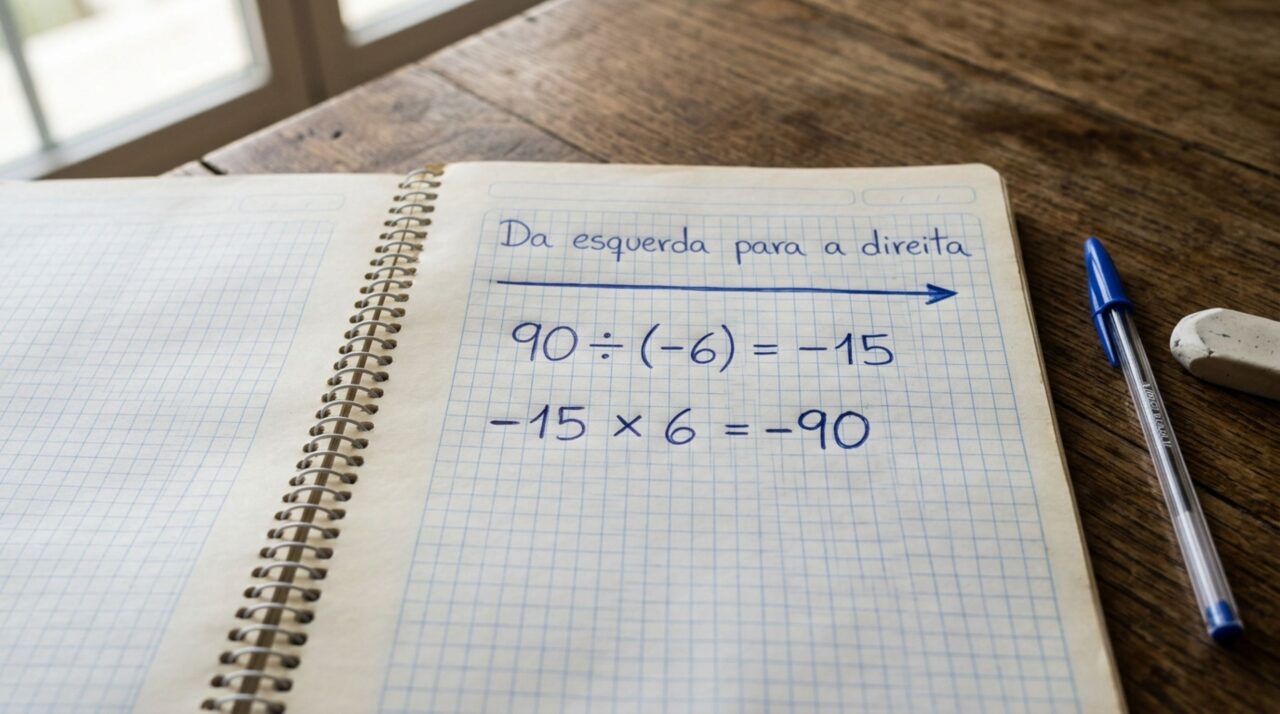 Da esquerda para a direita
90 ÷ (-6) = -15
-15 × 6 = -90